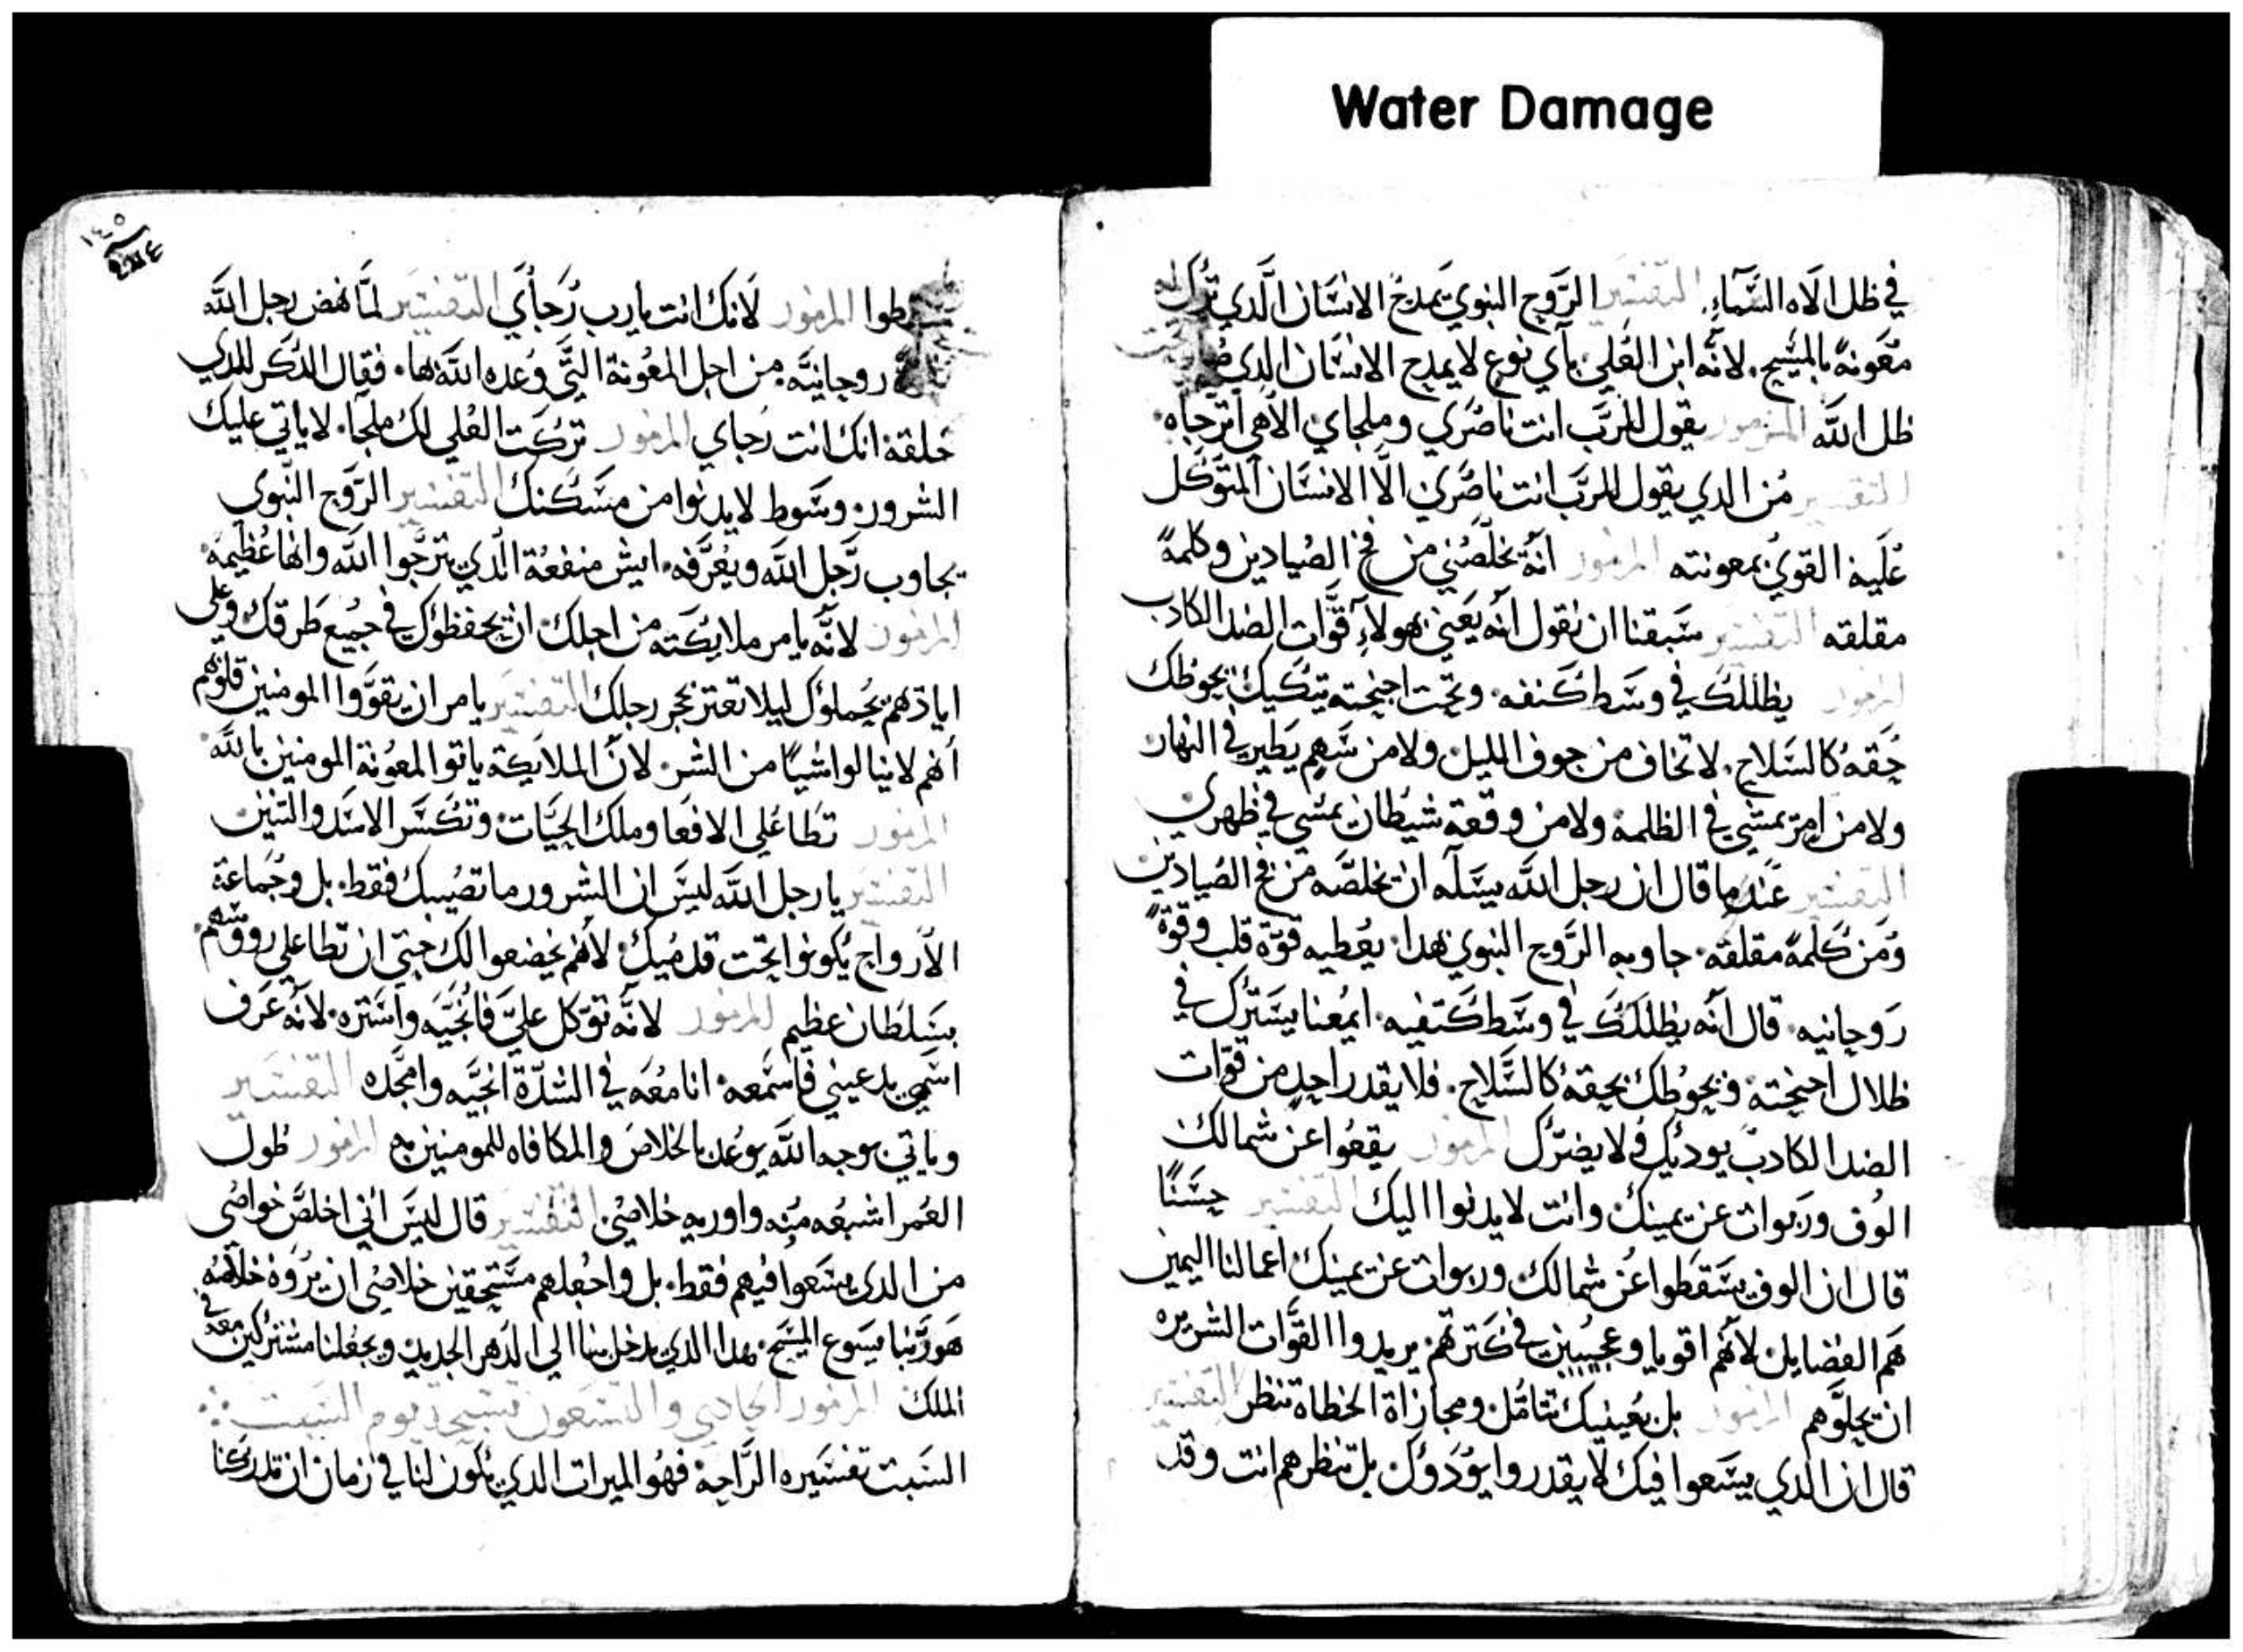 Water Damage
في ظل الاه السَّمآءِ. التفسير الرَّوح النبوي يمدح الانسَان الَّدي ترك له
معُونهً بالمسيح. لانَّه ابن العُلي بآي نوعٍ لا يمدح الانسَان الدي
ظل الله المزمور يقول للرَّب انت ناصُري وملجاي الاهي اترجاه.
التفسير مُن الدي يقول للرَّب انت ناصُري الاَّ الانسَان المتوكل
عُليه القويُ بمعونته المزمور انَّهُ يخلصُني من فخ الصُيادين وكلمهً
مقلقه التفسير سَبقنا ان نقول انه يَعني بهولاءِ قوَّات الضد الكادب
المزمور يظللكَ في وسَط كنفه. وتحت اجنحته تتكيك يحوطك
حَقهُ كالسَلاح. لا تخاف من جوف الليل ولا من سَهم يَطير في النهار
ولا من امرٍ يمشي في الظلمة ولا من وقعة شيطان يمشي في ظهري
التفسير عَندما قال ان رجل الله يسَله ان يخلصَه من فخ الصُيادين
وَمن كلمهً مقلقه. جاوبه الرَّوح النبوي هدا. يعُطيه قوّة قلب وقوةً
رَوحانيه. قال انَّه يظللَكَ في وسَط كتفيه. ايمُعنا يسَترك في
ظلال اجنحته ويحوُطك بحقهُ كالسَّلاح. فلا يقدر احدٍ من قوّات
الضد الكادب يوديكُ ولا يضرَّك المزمور يقعُوا عن شمالك
الوُف وربوات عن يمينك وانت لا يدنوا اليك التفسير حسَنًا
قال ان الوف يسَقطوا عُن شمالك وربوات عن يمينك اعمالنا اليمين
هَم الفضايل لانَّهم اقويا وعجيبين في كترتهم يريدوا القوَّات الشريره
ان يحلوَّهم المزمور بل بعُينيك تتامُل ومجازاة الخطاة تنظر التفسير
قال ان الدي يسَعوا فيك لا يقدروا يوُدَوك بل تنظرهم انت وقد
١٤٥
سَقطوا المزمور لانك انت يارب رَجأي التفسير لمَّا نهض رجل الله
روحانيَّه. من اجل المعُونة التَّي وعُده الله بها. فقال الدكر للدي
خلقهُ انك انت رَجاي المزمور تركت العُلي لك ملجا. لا ياتي عليك
الشرور. وسَوط لا يدنوا من مسَكنك التفسير الرَّوح النَّبوي
يجاوب رَجل الله ويعُرَّفه. ايش منفعُة الَّدي يترجَّوا الله وانها عُظيمة.
المزمور لانَّه يامر ملايكته من اجلك ان يحفظوُك في جمُيع طرقك وعلي
اياديهم يحُملوُك ليلا تعتر بحجر رجلك التفسير يامر ان يقوَّوا المومنين قلوبهم
أنهم لا ينالوا شيًا من الشر. لان الملايكة ياتوا لمعُونة المومنين بالله.
المزمور تطا علي الافعَا وملك الحيَّات. وتكسَر الاسَد والتنين
التفسير يا رجل الله ليسَ ان الشرور ما تصُيبك فقط. بل وجُماعة
الاَرواح يُكونوا تحت قدمُيك. لانهم يخضعوا لك حتي ان تطا علي رووسَهم
بسَلطان عظيم المزمور لانَّه توكل عليَّ فانُجَيه واسَتره. لانَّه عَرف
اسَمي يدعيني فاسَمعه. انا معُه في الشدَّة انجيَّه وامجَّده التفسير
وياتي بوجه الله يوعُد بالخلاص والمكافاه للمومنين به المزمور طول
العُمر اشبعُه منُه واوريه خلاصُي التفسير قال ليسَ انُي اخلصَ خواصُي
من الدي يسَعوا فيهم فقط. بل واجعُلهم مسَتحقين خلاصُي ان يروَه خلاصُه
هو ربنا يسَوع المسَيح. هدا الدي يدخل بنا الي الدَهر الجديد ويجعُلنا مشتركين معه في
الملك المزمور الحادي والتسَعون تسَبحة يوم السَبت
السَبت تفسَيره الرَّاحة فهوُ الميرات الدي يُكون لنا في زمان ان تدركنا